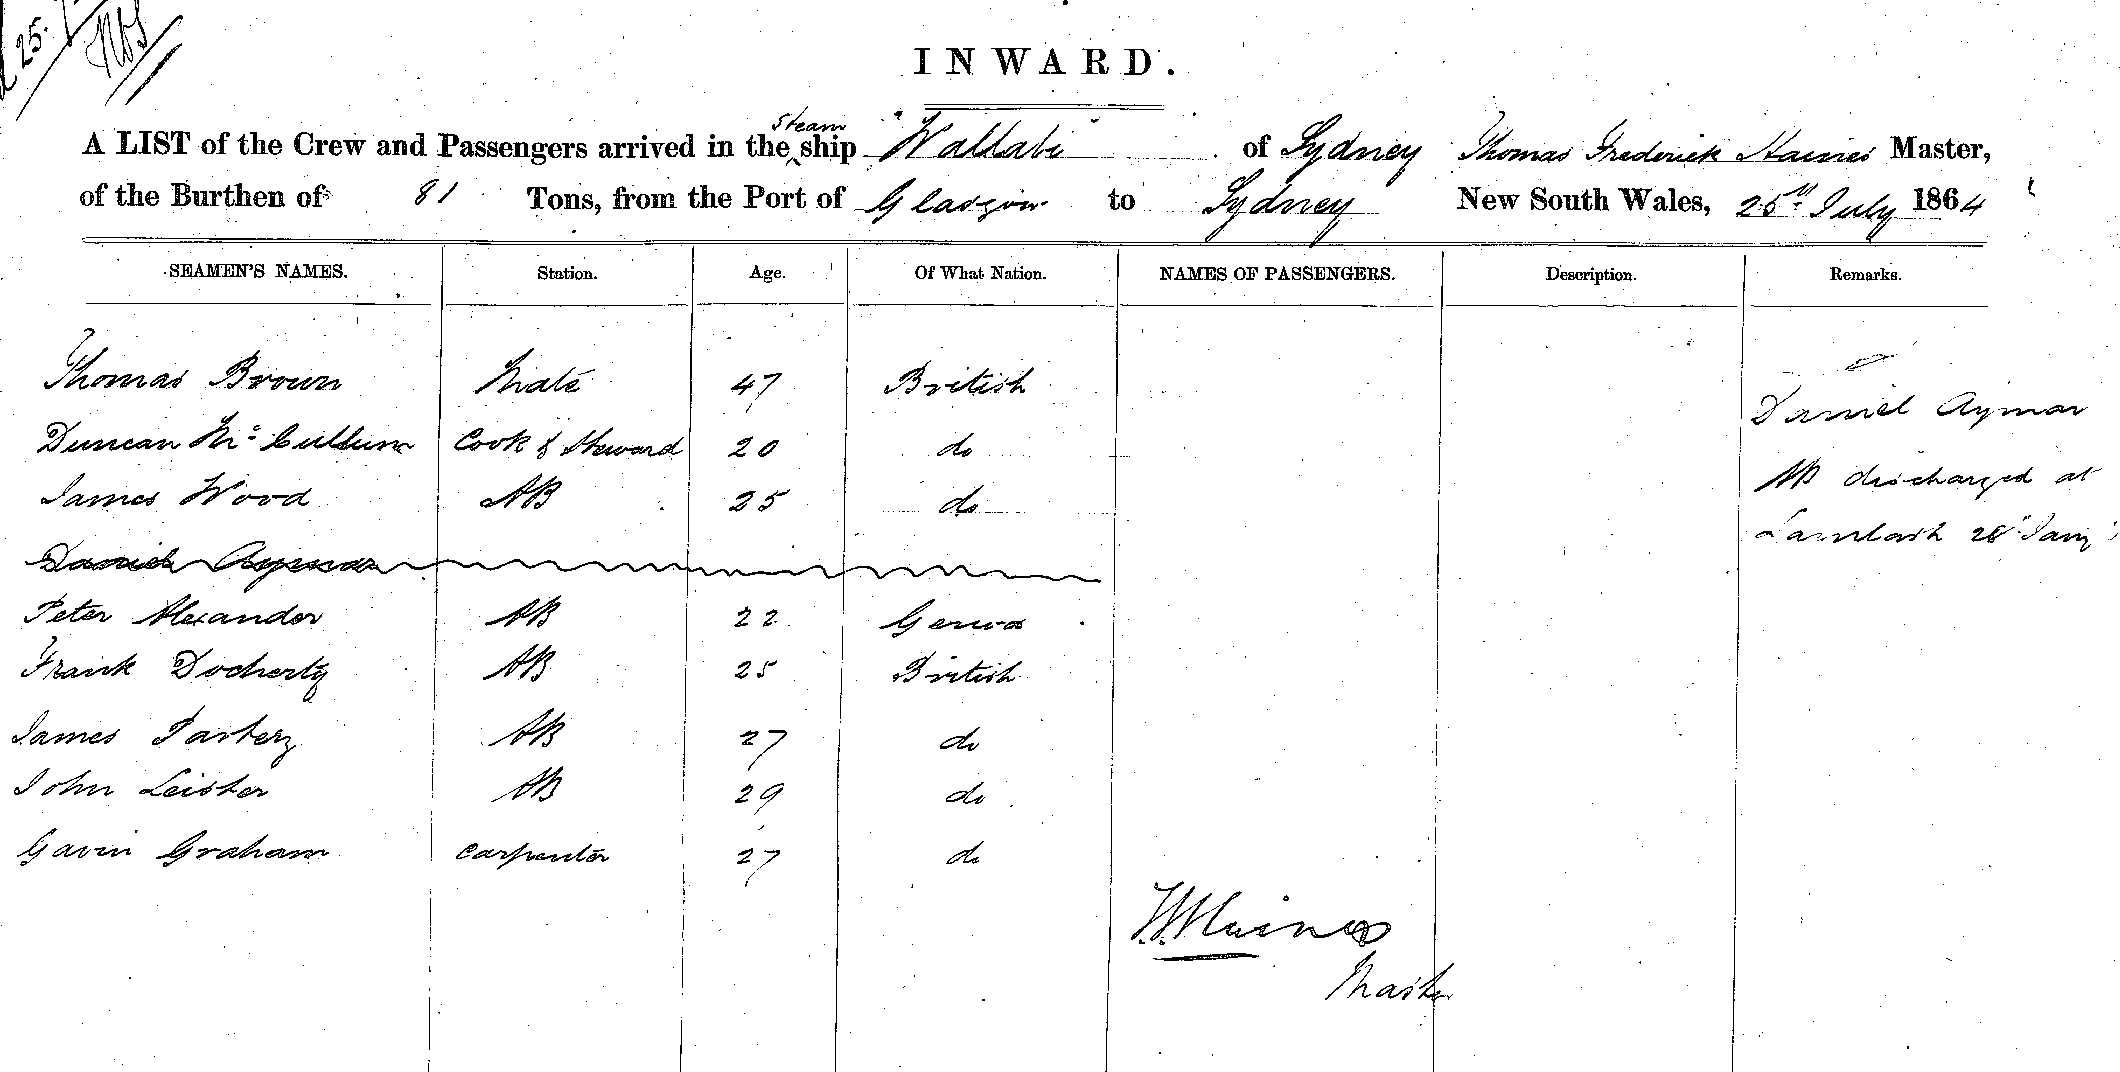 25.
INWARD.
A LIST of the Crew and Passengers arrived in the steam ship "Wallabi" of Sydney Thomas Frederick Haines Master,
of the Burthen of 81 Tons, from the Port of Glasgow to Sydney New South Wales, 25th July 1864
SEAMEN'S NAMES. Station. Age. Of What Nation. NAMES OF PASSENGERS. Description. Remarks.
Thomas Brown Mate 47 British
Daniel Aymar
Duncan Mc Cullum Cook & Steward 20 do
AB discharged at
James Wood AB 25 do
Lamlash 28" Jany
Daniel Aymar
Peter Alexander AB 22 Genoa
Frank Docherty AB 25 British
James AB 27 do
John Leister AB 29 do
Gavin Graham Carpenter 27 do
T.F. Haines
Master